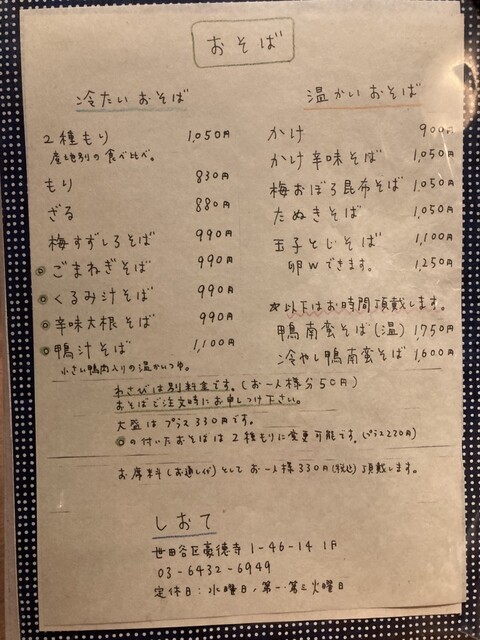 おそば
冷たいおそば
2種もり 1,050円
産地別の食べ比べ。
もり 830円
ざる 880円
梅すずしろそば 990円
ごまねぎそば 990円
くるみ汁そば 990円
辛味大根そば 990円
鴨汁そば 1,100円
小さい鴨肉入りの温かいつゆ。
温かいおそば
かけ 900円
かけ辛味そば 1,050円
梅おぼろ昆布そば 1,050円
たぬきそば 1,050円
玉子とじそば 1,100円
卵Wできます。 1,250円
※以下はお時間頂戴します。
鴨南蛮そば(温) 1,750円
冷やし鴨南蛮そば 1,600円
わさびは別料金です。(お一人様分50円)
おそばご注文時にお申しつけ下さい。
大盛はプラス330円です。
◎の付いたおそばは2種もりに変更可能です。(プラス220円)
お席料(お通し代)としてお一人様330円(税込)頂戴します。
しおて
世田谷区豪徳寺1-46-14 1F
03-6432-6949
定休日:水曜日,第一・第三火曜日